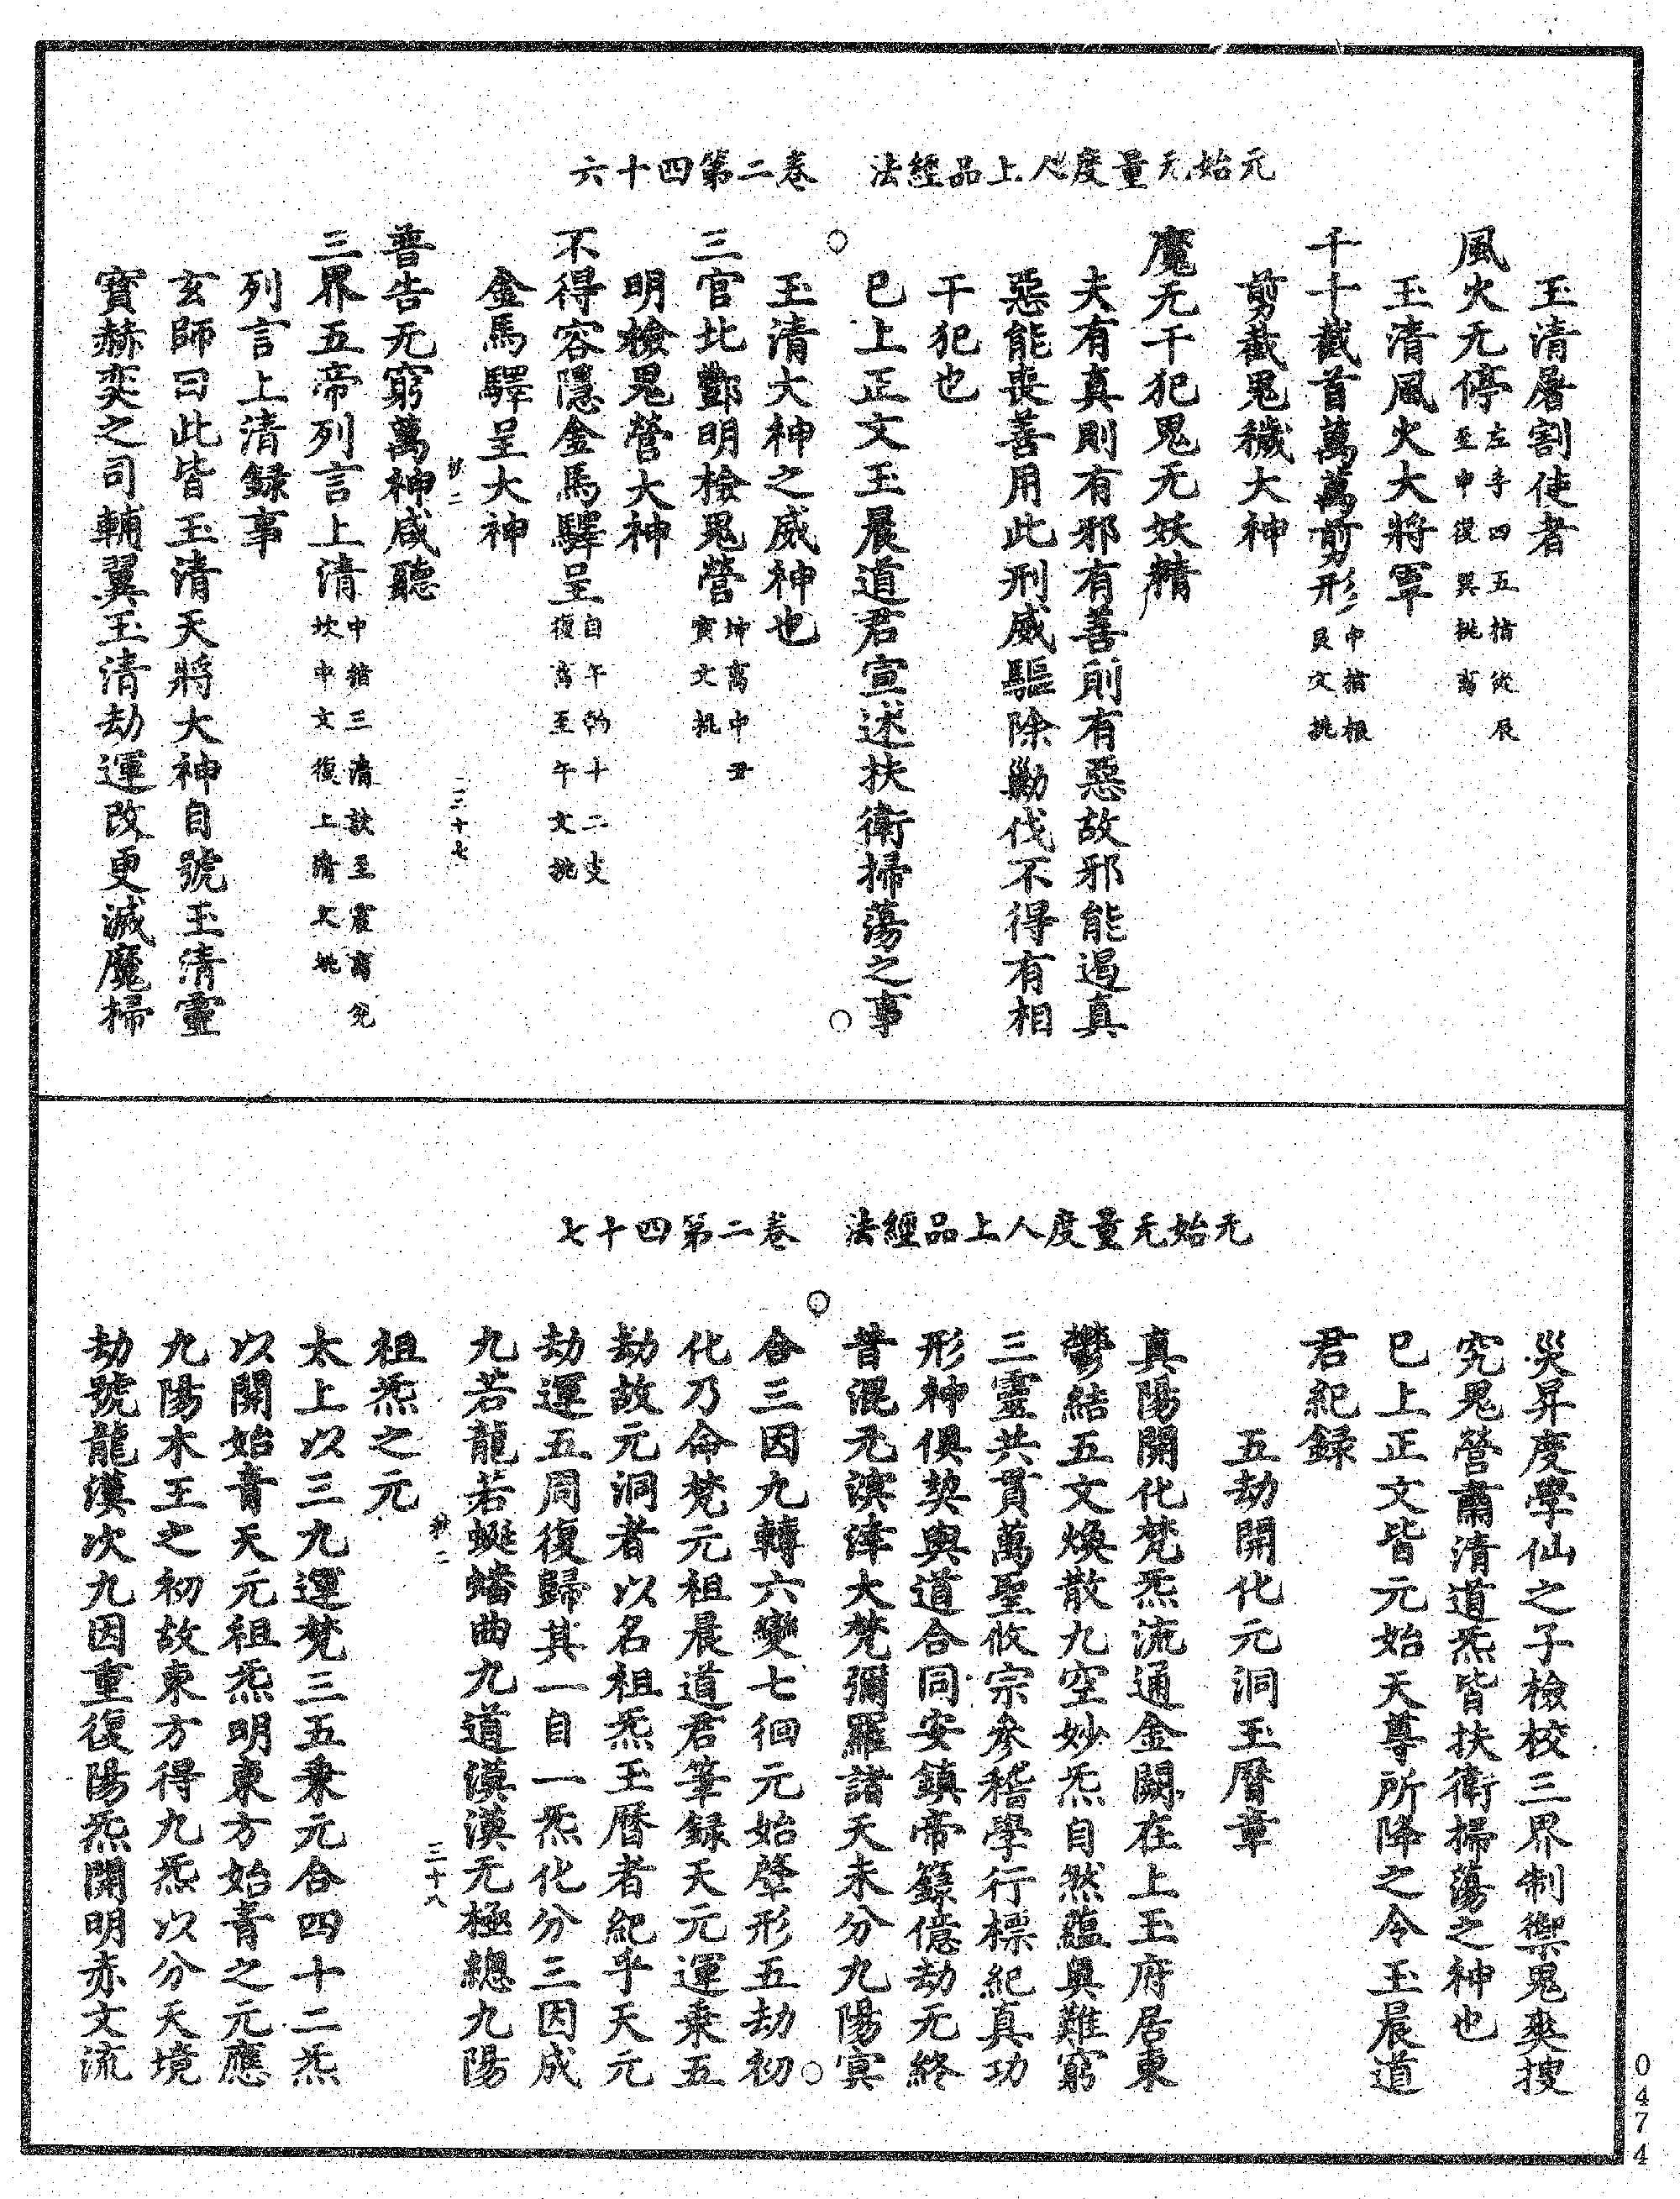 元始无量度人上品經法　卷二第四十六
玉清屠割使者
風火无停左手四五指從辰至申復巽挑离
玉清風火大將軍
千千截首萬萬剪形中指根艮文挑
剪截鬼穢大神
魔无干犯鬼无妖精
夫有真則有邪有善則有惡故邪能遏真
惡能喪善用此刑威驅除勦伐不得有相
干犯也
已上正文玉晨道君宣述扶衛掃蕩之事
玉清大神之威神也
三官北酆明檢鬼營坤离中丑寅文挑
明檢鬼營大神
不得容隱金馬驛呈自午輪十二支復离至午文挑
金馬驛呈大神
抄二　二二十七
普告无窮萬神咸聽
三界五帝列言上清中指三清訣至震离兌坎申文復上清文挑
列言上清録事
玄師曰此皆玉清天將大神自號玉清靈
寶赫奕之司輔翼玉清劫運改更滅魔掃
元始无量度人上品經法　卷二第四十七
災昇度學仙之子檢校三界制禦鬼爽搜
究鬼營肅清道炁皆扶衛掃蕩之神也
已上正文皆元始天尊所降之令玉晨道
君紀録
五劫開化元洞玉曆章
真陽開化梵炁流通金闕在上玉府居東
鬱結五文煥散九空妙炁自然蘊奧難窮
三靈共貫萬聖攸宗參稽學行標紀真功
形神俱契與道合同安鎮帝籙億劫无終
昔混元溟涬大梵彌羅諸天未分九陽冥
合三因九轉六變七徊元始肇形五劫初
化乃命梵元祖晨道君筆録天元運乗五
劫故元洞者以名祖炁玉曆者紀乎天元
劫運五周復歸其一自一炁化分三因成
九若龍若蜒蟠曲九道漠漠无極總九陽
抄二　三十八
祖炁之元
太上以三九運梵三五乗元合四十二炁
以開始青天元祖炁明東方始青之元應
九陽木王之初故東方得九炁以分天境
劫號龍漢次九因重復陽炁開明赤文流
0474